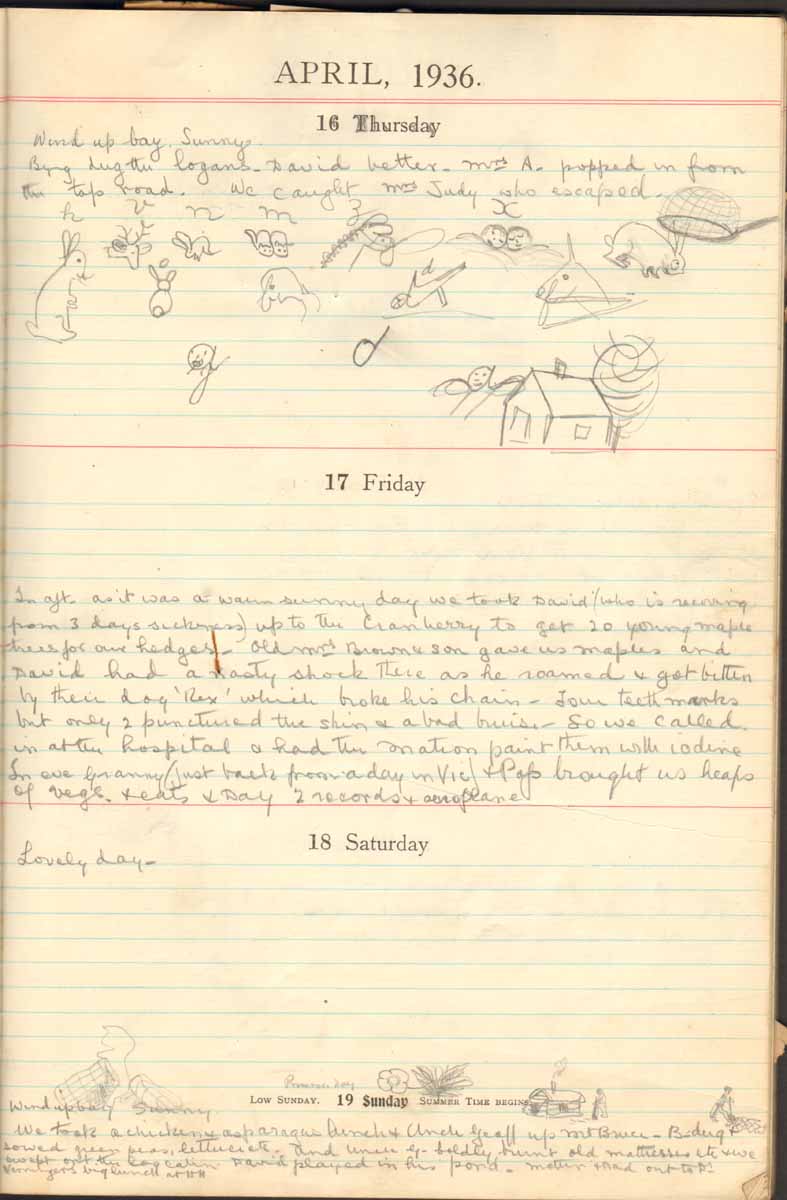 APRIL, 1936.
16 Thursday
Wind up bay. Sunny.
Byng dug the logans. David better. Mrs A. popped in from
the top road. We caught Mrs Judy who escaped.
h v n m z x
d
g d
17 Friday
In aft. as it was a warm sunny day we took David (who is recoving
from 3 days sickness) up to the Cranberry to get 20 young maple
trees for our hedges. Old Mrs Brown & son gave us maples and
David had a nasty shock there as he roamed & got bitten
by their dog 'Rex' which broke his chain - Four teeth marks
but only 2 punctured the skin & a bad bruise - So we called
in at the hospital & had the matron paint them with iodine
In eve Granny (just back from a day in Vic) & Pops brought us heaps
of vegs. & eats & Day 2 records & aeroplane
18 Saturday
Lovely day -
Primrose day
Low Sunday. 19 Sunday Summer Time begins
Wind up bay Sunny
We took a chicken & asparagus lunch & Uncle Geoff up Mt Bruce - B. dug &
sowed green peas, lettuce etc. and Uncle G. boldly burnt old mattresses etc & we
swept out the log cabin David played in his pond.